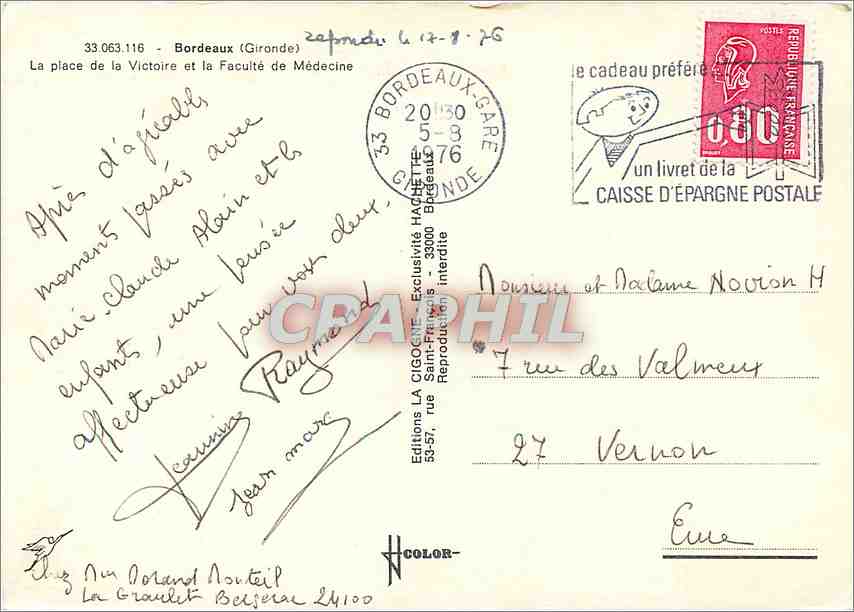 33.063.116 - Bordeaux (Gironde)
La place de la Victoire et la Faculté de Médecine
repondu le 17-8-76
33 BORDEAUX-GARE
20H30
5-8
1976
GIRONDE
le cadeau préféré
un livret de la
CAISSE D'ÉPARGNE POSTALE
POSTES
REPUBLIQUE FRANÇAISE
0,80
Après d'agréables
moments passés avec
Marie-Claude Alain et les
enfants, une pensée
affectueuse pour vous deux.
Raymond
Jeannine
Jean marc
CPAPHIL
Editions LA CIGOGNE - Exclusivité HACHETTE
53-57, rue Saint-François - 33000 Bordeaux
Reproduction interdite
Monsieur et Madame Novion H
7 rue des Valmeux
27 Vernon
Eure
COLOR
Chez Mme Morand Monteil
La Graulet Bergerac 24100